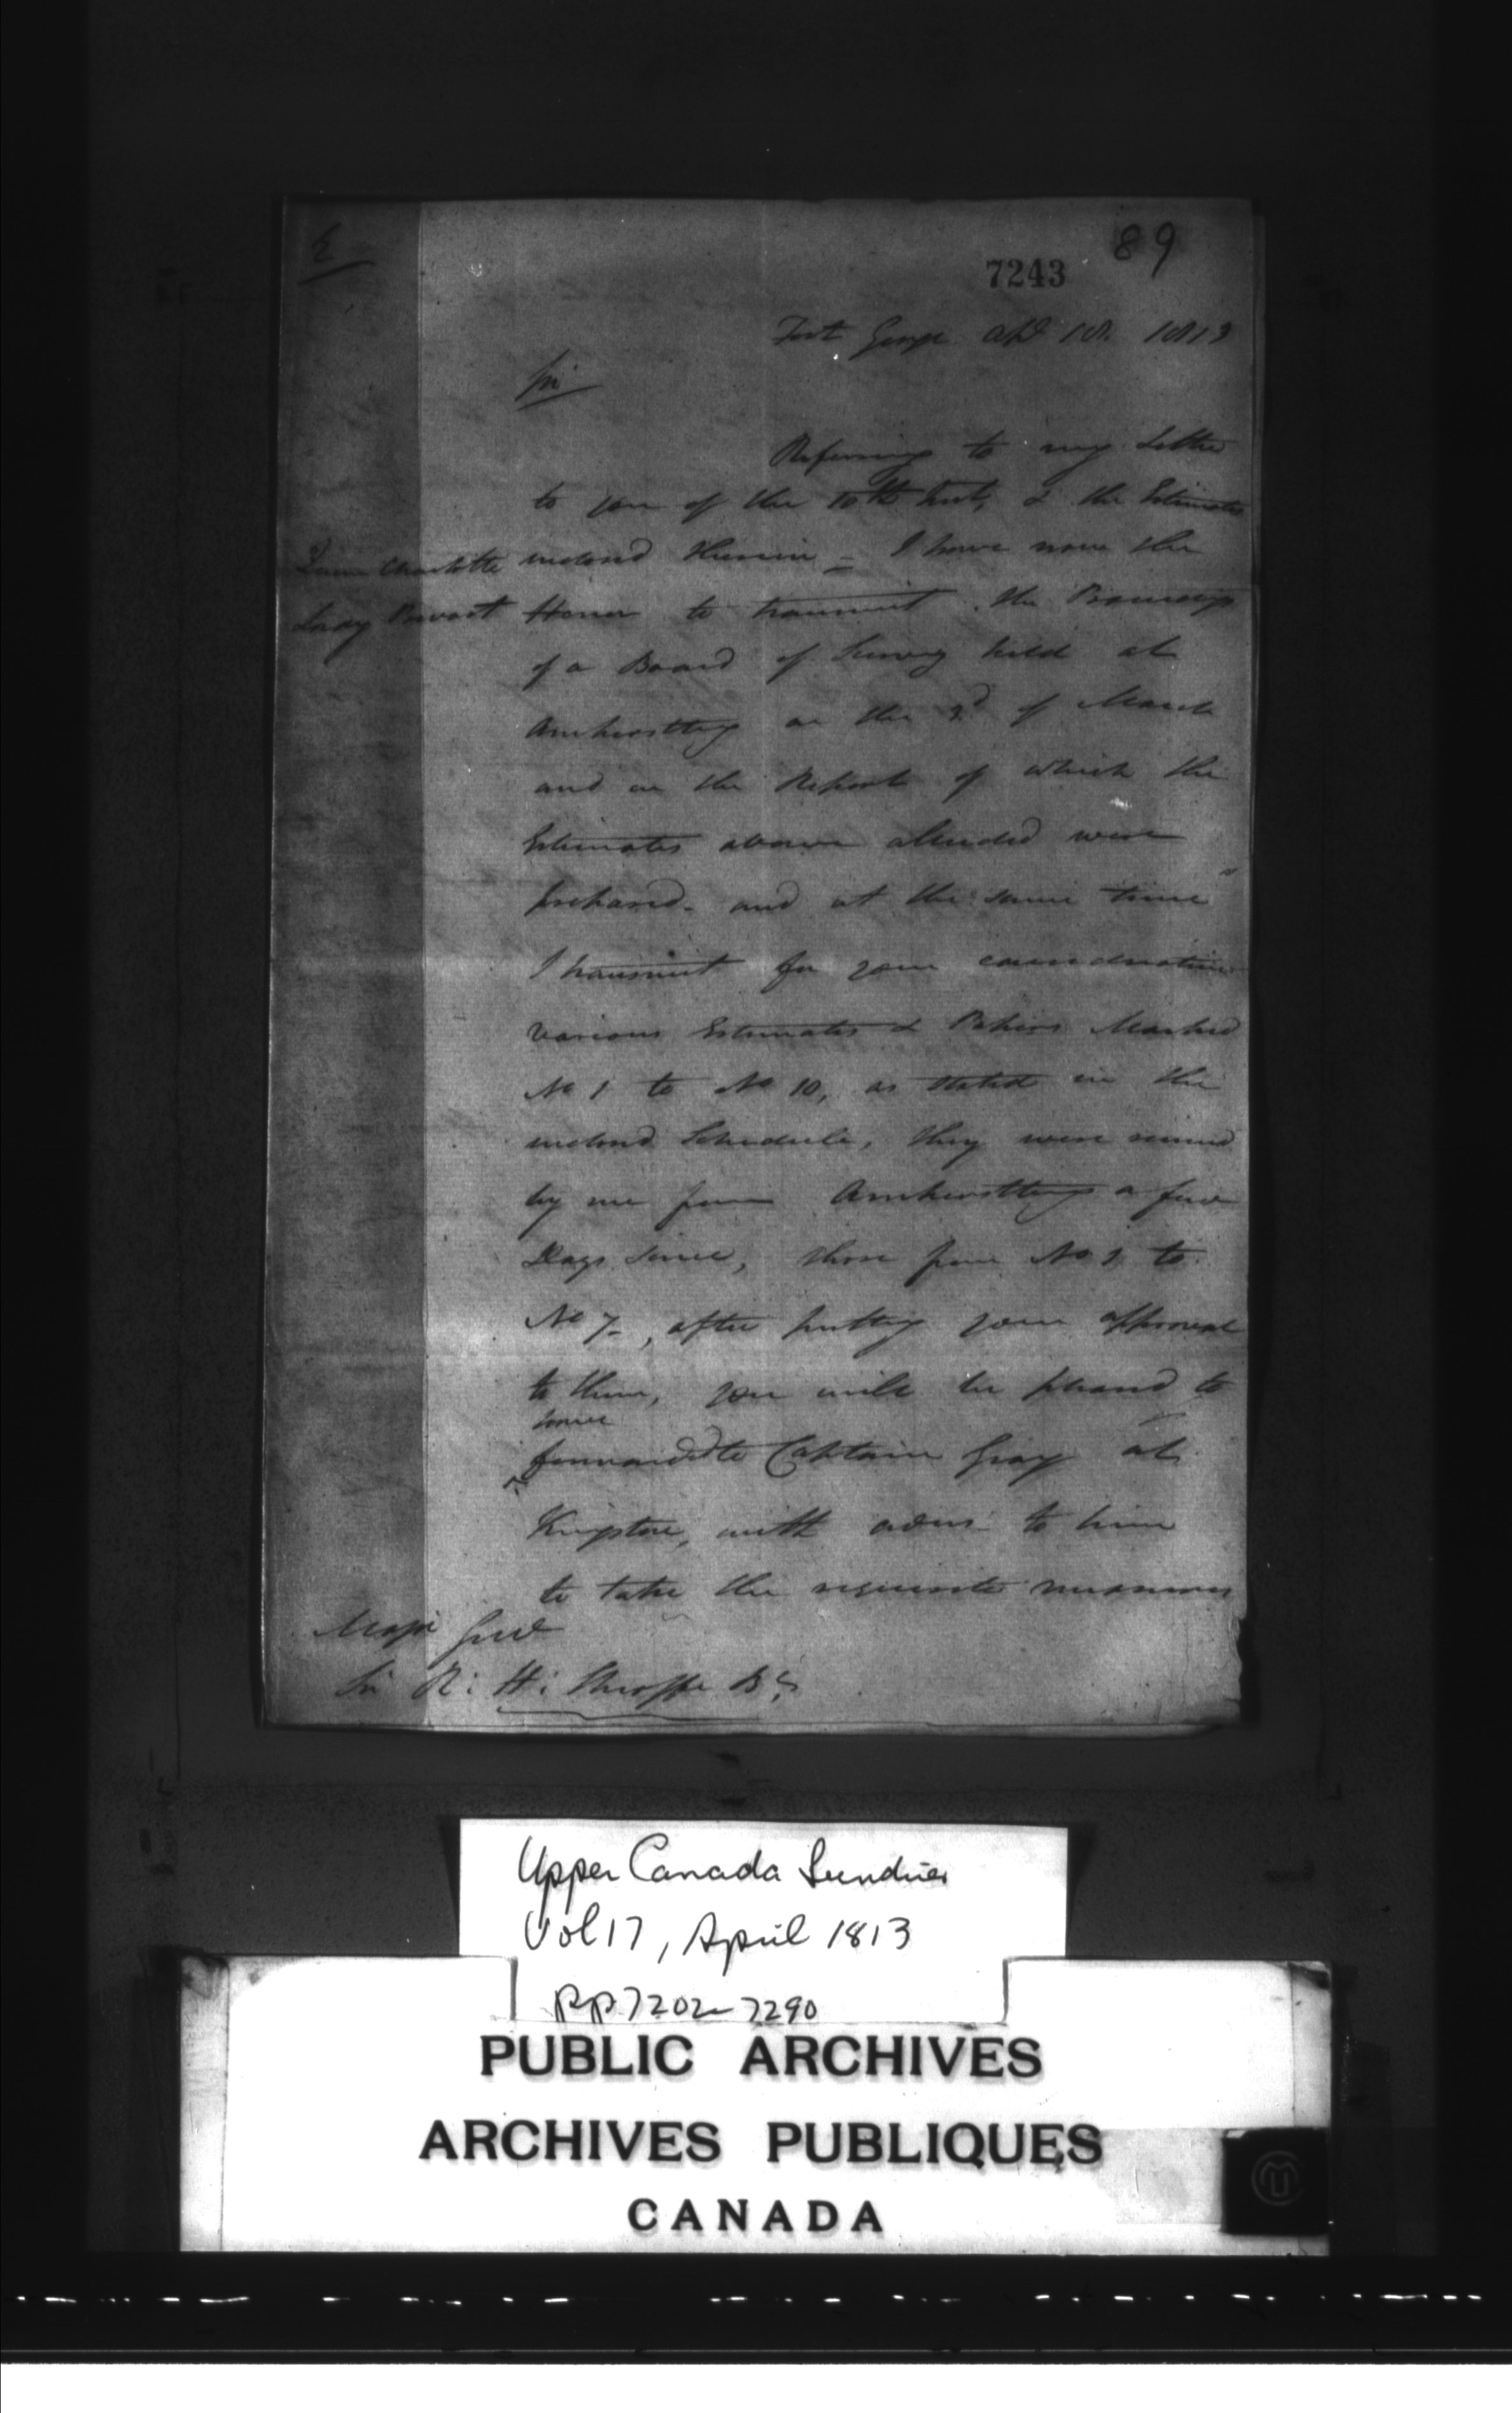 89
7243
Fort George Apl 18. 1813
Sir
Referring to my Letter
to you of the 10th Inst, & the Estimates
Queen Charlotte inclosed therein _ I have now the
Lady Prevost Honor to transmit the Proceedings
of a Board of Survey held at
Amherstburg on the 3d of March
and on the Report of which the
Estimates above alluded were
prepared - and at the same time
I transmit for your consideration
various Estimates & Papers Marked
No 1 to No 10, as stated in the
inclosed Schedule, they were received
by me from Amherstburg a few
Days since, those from No 1 to
No 7_, after putting your approval
to them, you will be pleased to
have
forwarded to Captain Gray at
Kingston, with orders to him
to take the requisite measures
Major Genl
Sir R: H: Sheaffe Bt
Upper Canada Sundries
Vol 17, April 1813
pp 7202-7290
PUBLIC ARCHIVES
ARCHIVES PUBLIQUES
CANADA